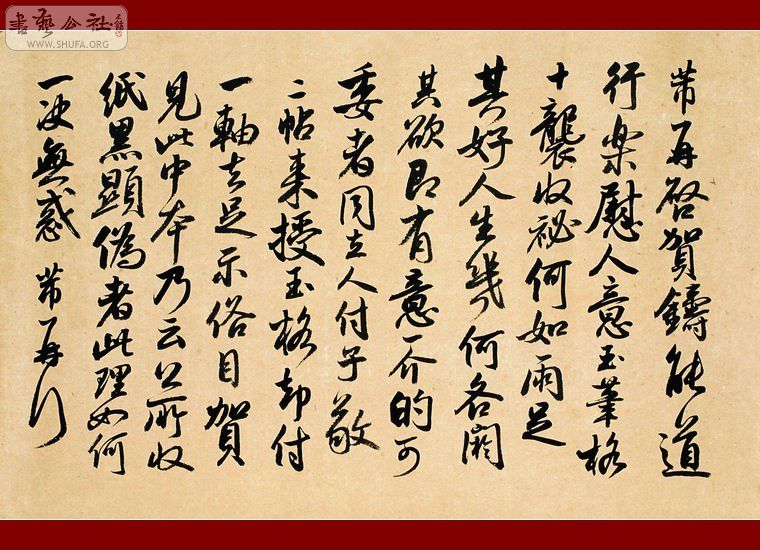 書藝公社
WWW.SHUFA.ORG
芾再啓賀鑄能道
行樂慰人意玉筆格
十襲收祕何如兩足
其好人生幾何各闕
其欲即有意一介的可
委者同去人付子敬
二帖來授玉格却付
一軸去足示俗目賀
見此中本乃云公所收
紙黑顯偽者此理如何
一決無惑芾再行